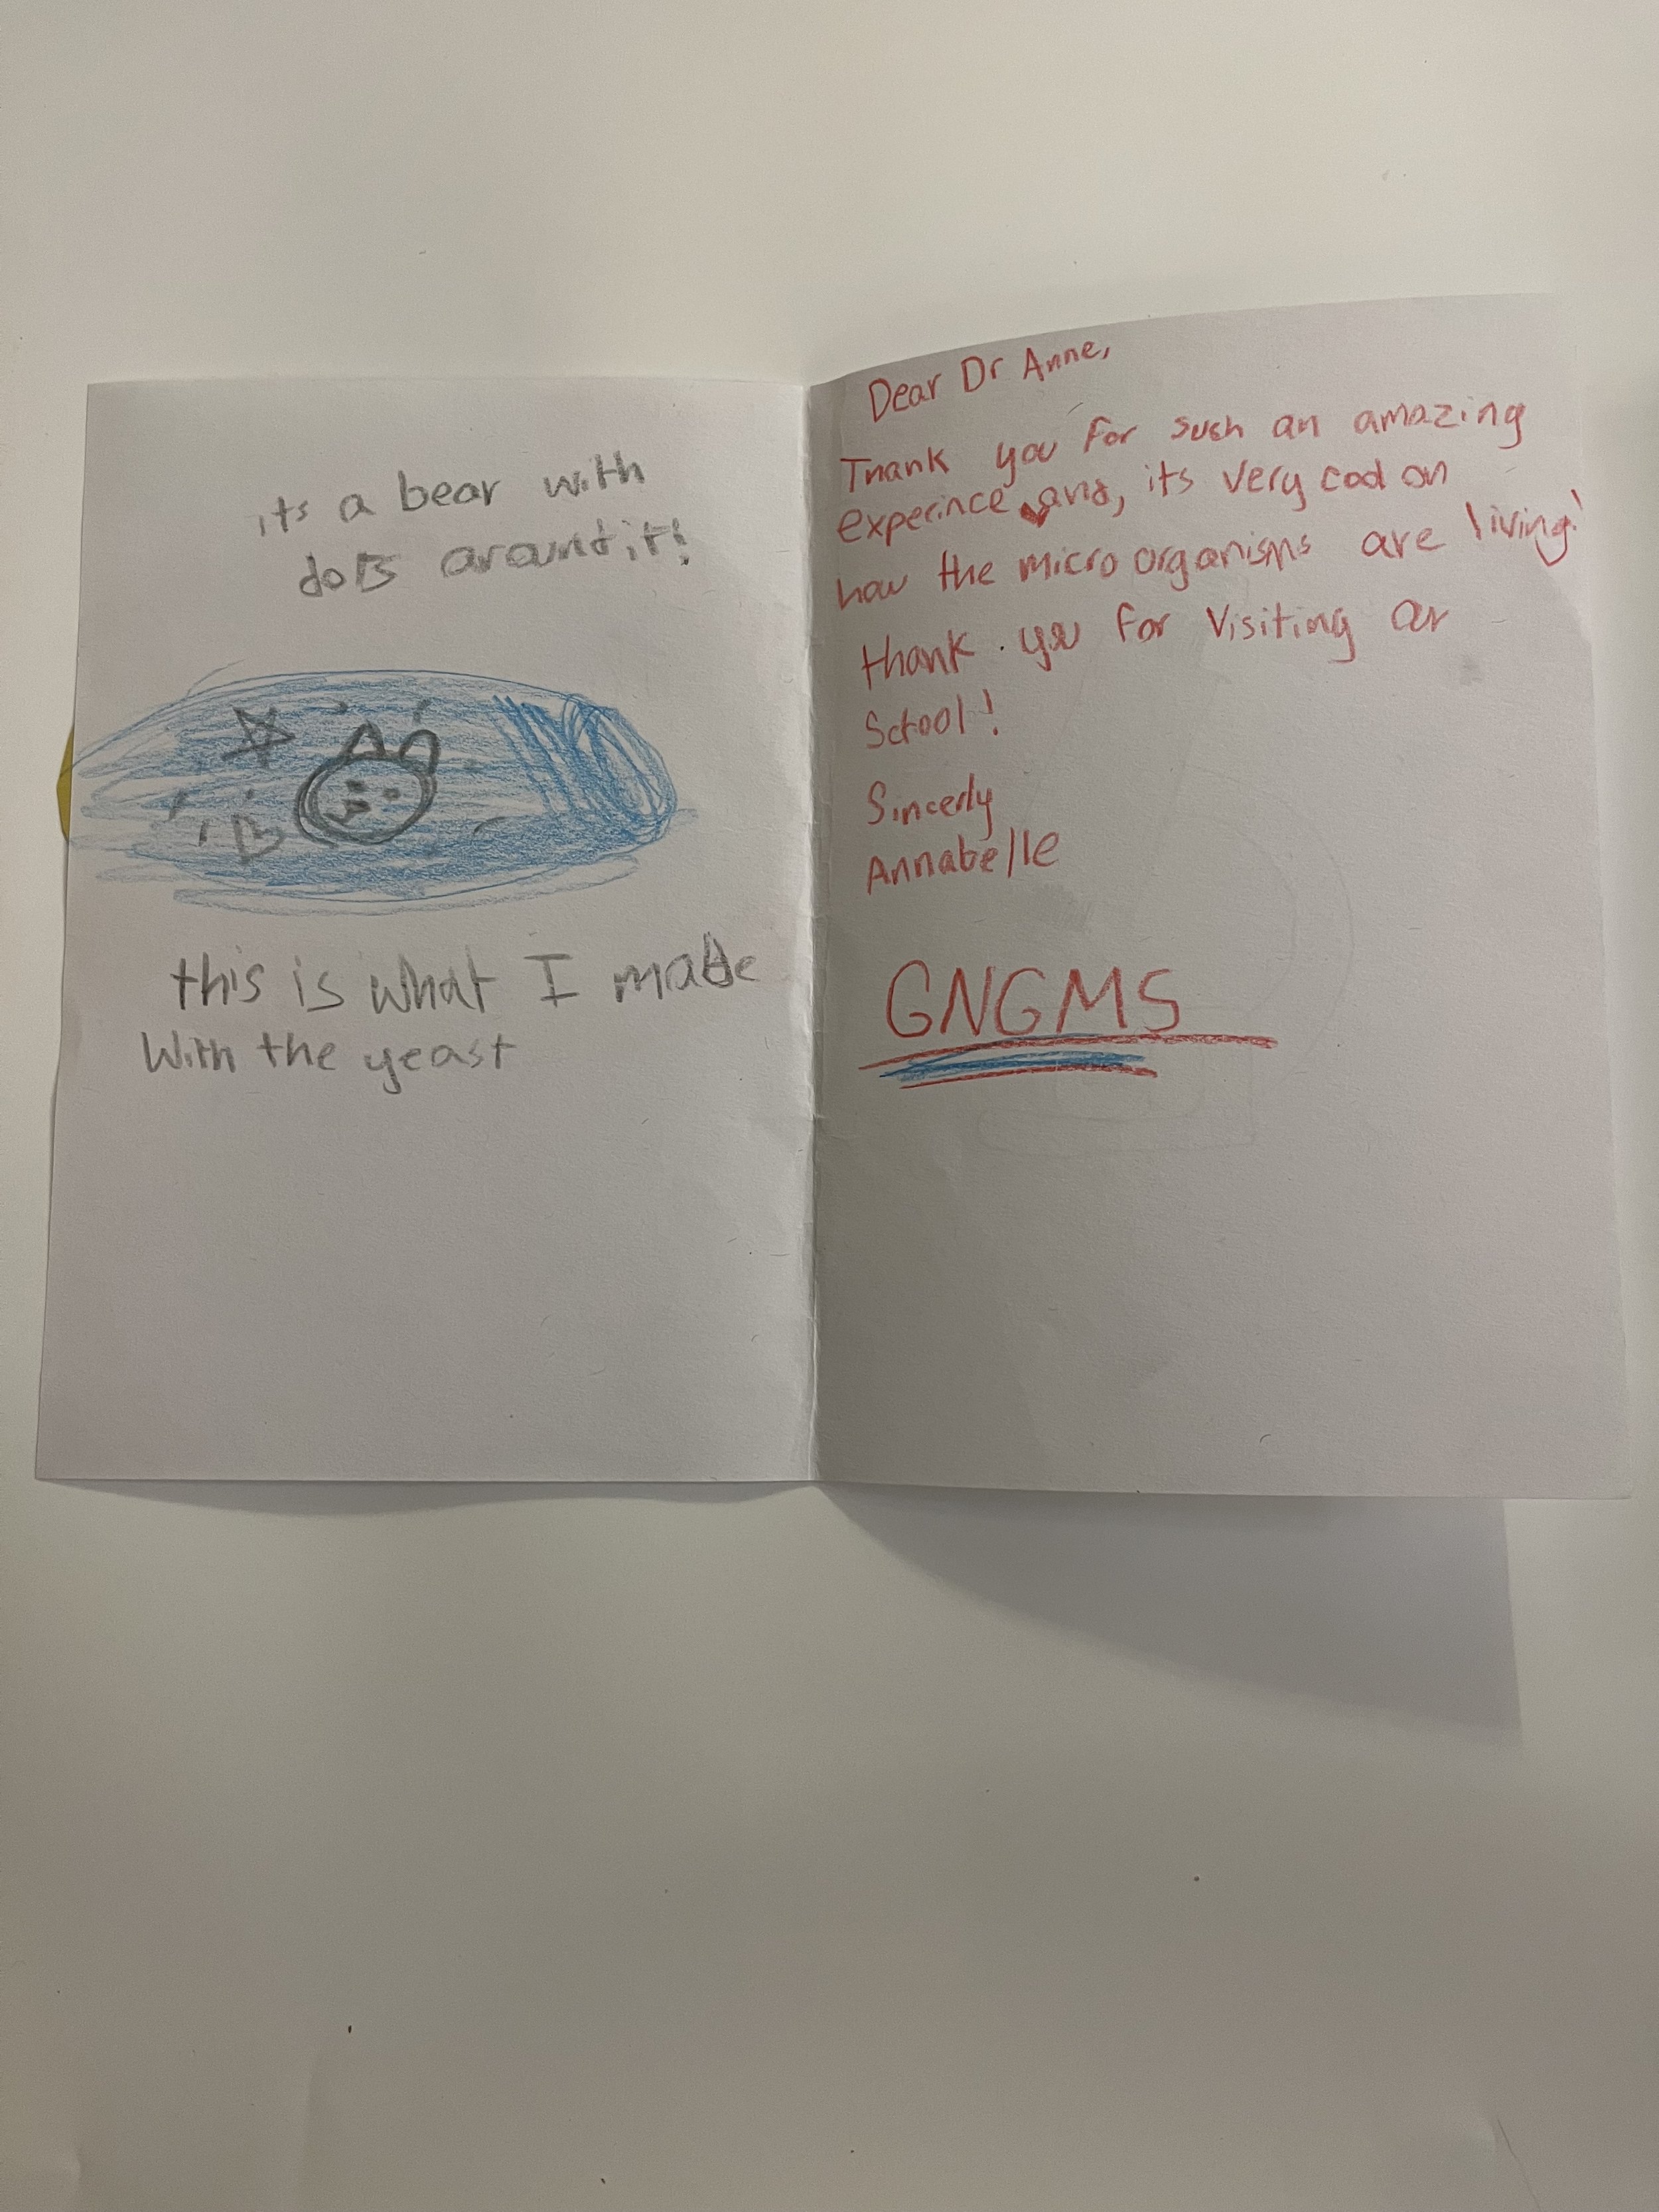 its a bear with
dots around it!
this is what I made
With the yeast
Dear Dr Anne,
Thank you for such an amazing
experince and, its very cool on
how the micro organisms are living!
thank you for Visiting our
School!
Sincerly
Annabelle
GNGMS